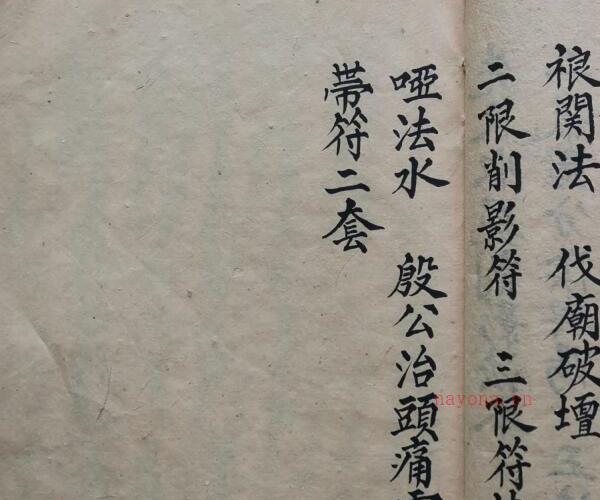 䘨関法 伐廟破壇
二限削影符 三限符
啞法水 殷公治頭痛
帯符二套
nayona.cn